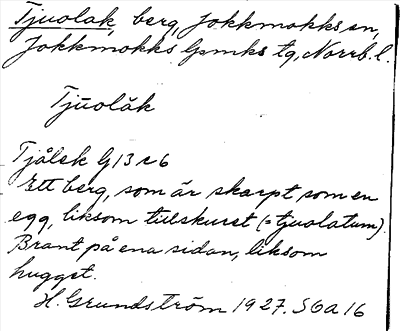 Tjuolak, berg, Jokkmokks sn,
Jokkmokks lpmks tg, Norrb. l.
Tjūolăk
Tjålek G13 r 6
Ett berg, som är skarpt som en
egg, liksom tillskuret (= tjuolatum).
Brant på ena sidan, liksom
hugget.
H. Grundström 1927. S6a16